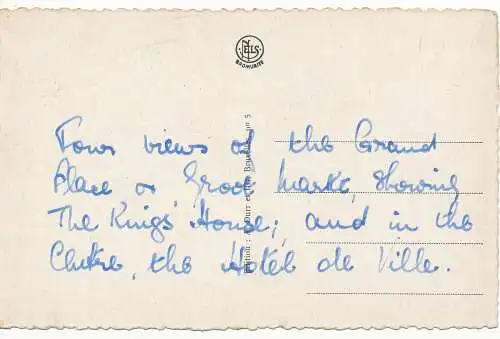 NELS
BROMURITE
Four views of the Grand
Place or Groot Markt, showing
The Kings' House; and in the
Centre, the Hotel de Ville.